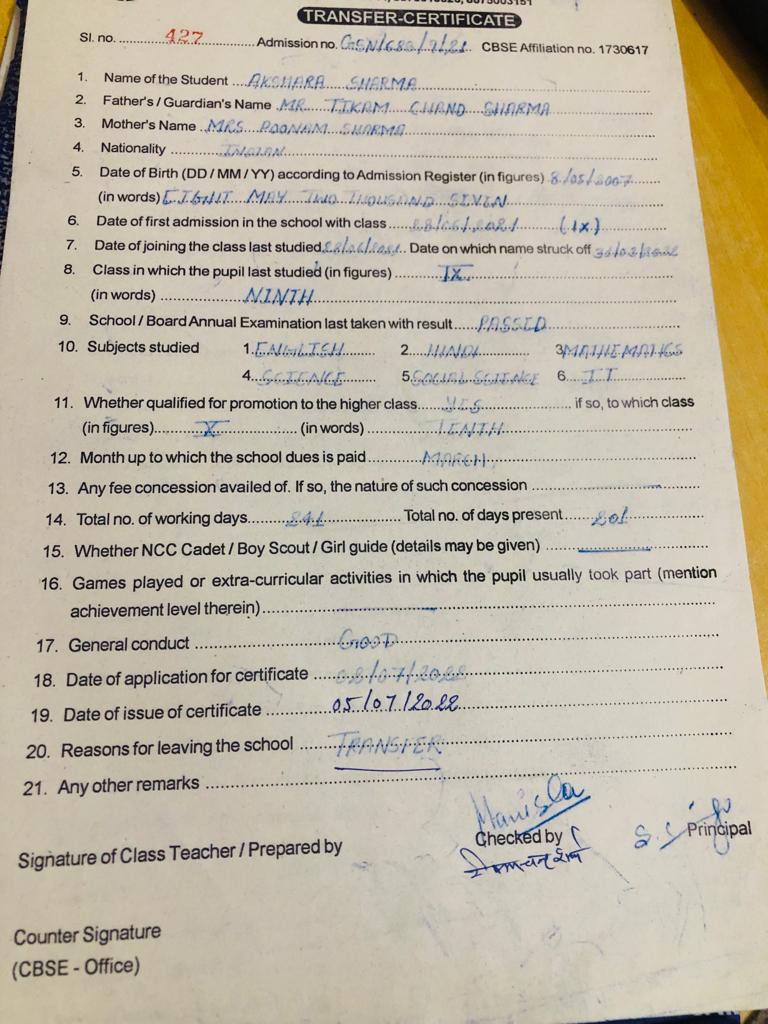 TRANSFER-CERTIFICATE
Sl. no. 427 Admission no. GSN/688/7/21 CBSE Affiliation no. 1730617
1. Name of the Student AKSHARA SHARMA
2. Father's / Guardian's Name MR. TIKAM CHAND SHARMA
3. Mother's Name MRS. POONAM SHARMA
4. Nationality INDIAN
5. Date of Birth (DD / MM / YY) according to Admission Register (in figures) 8/05/2007
(in words) EIGHT MAY TWO THOUSAND SEVEN
6. Date of first admission in the school with class (IX)
7. Date of joining the class last studied Date on which name struck off 31/03/2022
8. Class in which the pupil last studied (in figures) IX
(in words) NINTH
9. School / Board Annual Examination last taken with result PASSED
10. Subjects studied 1. ENGLISH 2. HINDI 3 MATHEMATICS
4. SCIENCE 5 SOCIAL SCIENCE 6. IT
11. Whether qualified for promotion to the higher class YES if so, to which class
(in figures) X (in words) TENTH
12. Month up to which the school dues is paid MARCH
13. Any fee concession availed of. If so, the nature of such concession
14. Total no. of working days 241 Total no. of days present 201
15. Whether NCC Cadet / Boy Scout / Girl guide (details may be given)
16. Games played or extra-curricular activities in which the pupil usually took part (mention
achievement level therein)
17. General conduct GOOD
18. Date of application for certificate 02/07/2022
19. Date of issue of certificate 05/07/2022
20. Reasons for leaving the school TRANSFER
21. Any other remarks
Manisha
Signature of Class Teacher / Prepared by Checked by Principal
Counter Signature
(CBSE - Office)